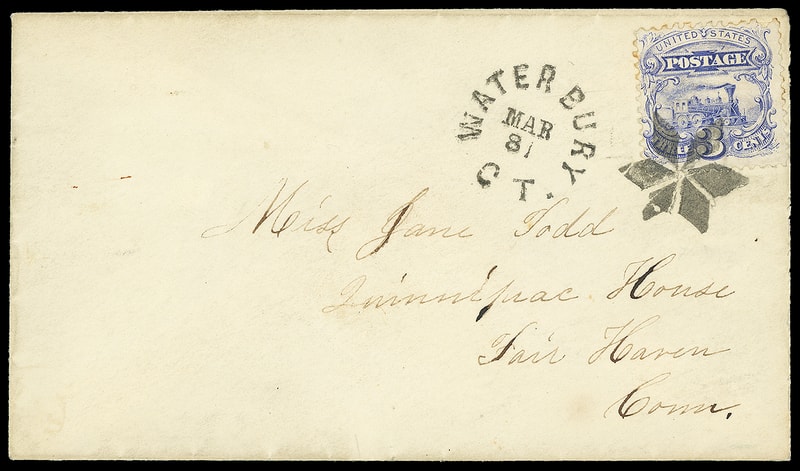 UNITED STATES
POSTAGE
3
CENTS
WATERBURY
MAR
31
CT.
Miss Jane Todd
Quinnipiac House
Fair Haven
Conn.